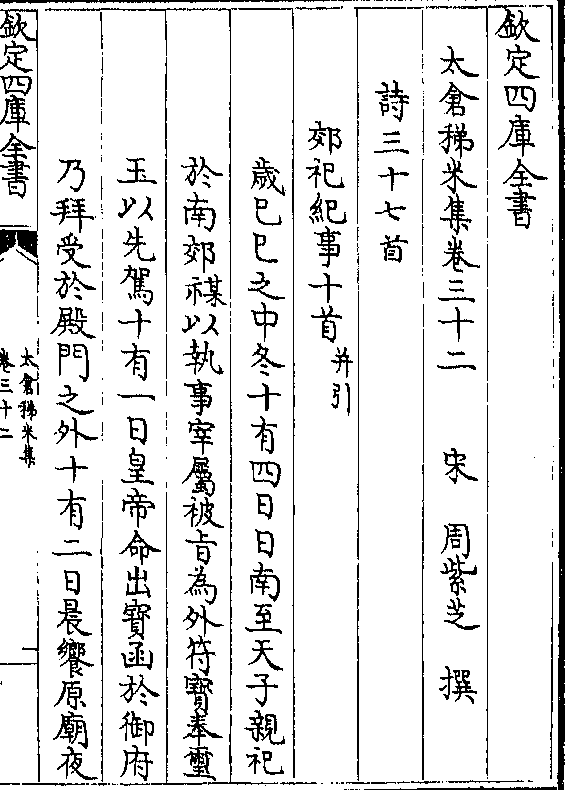 欽定四庫全書
太倉稊米集卷三十二　宋　周紫芝　撰
詩三十七首
郊祀紀事十首并引
歲已巳之中冬十有四日日南至天子親祀
於南郊禖以執事宰屬被旨為外符寶奉璽
玉以先駕十有一日皇帝命出寶函於御府
乃拜受於殿門之外十有二日晨饗原廟夜
欽定四庫全書
太倉稊米集
卷三十二
一